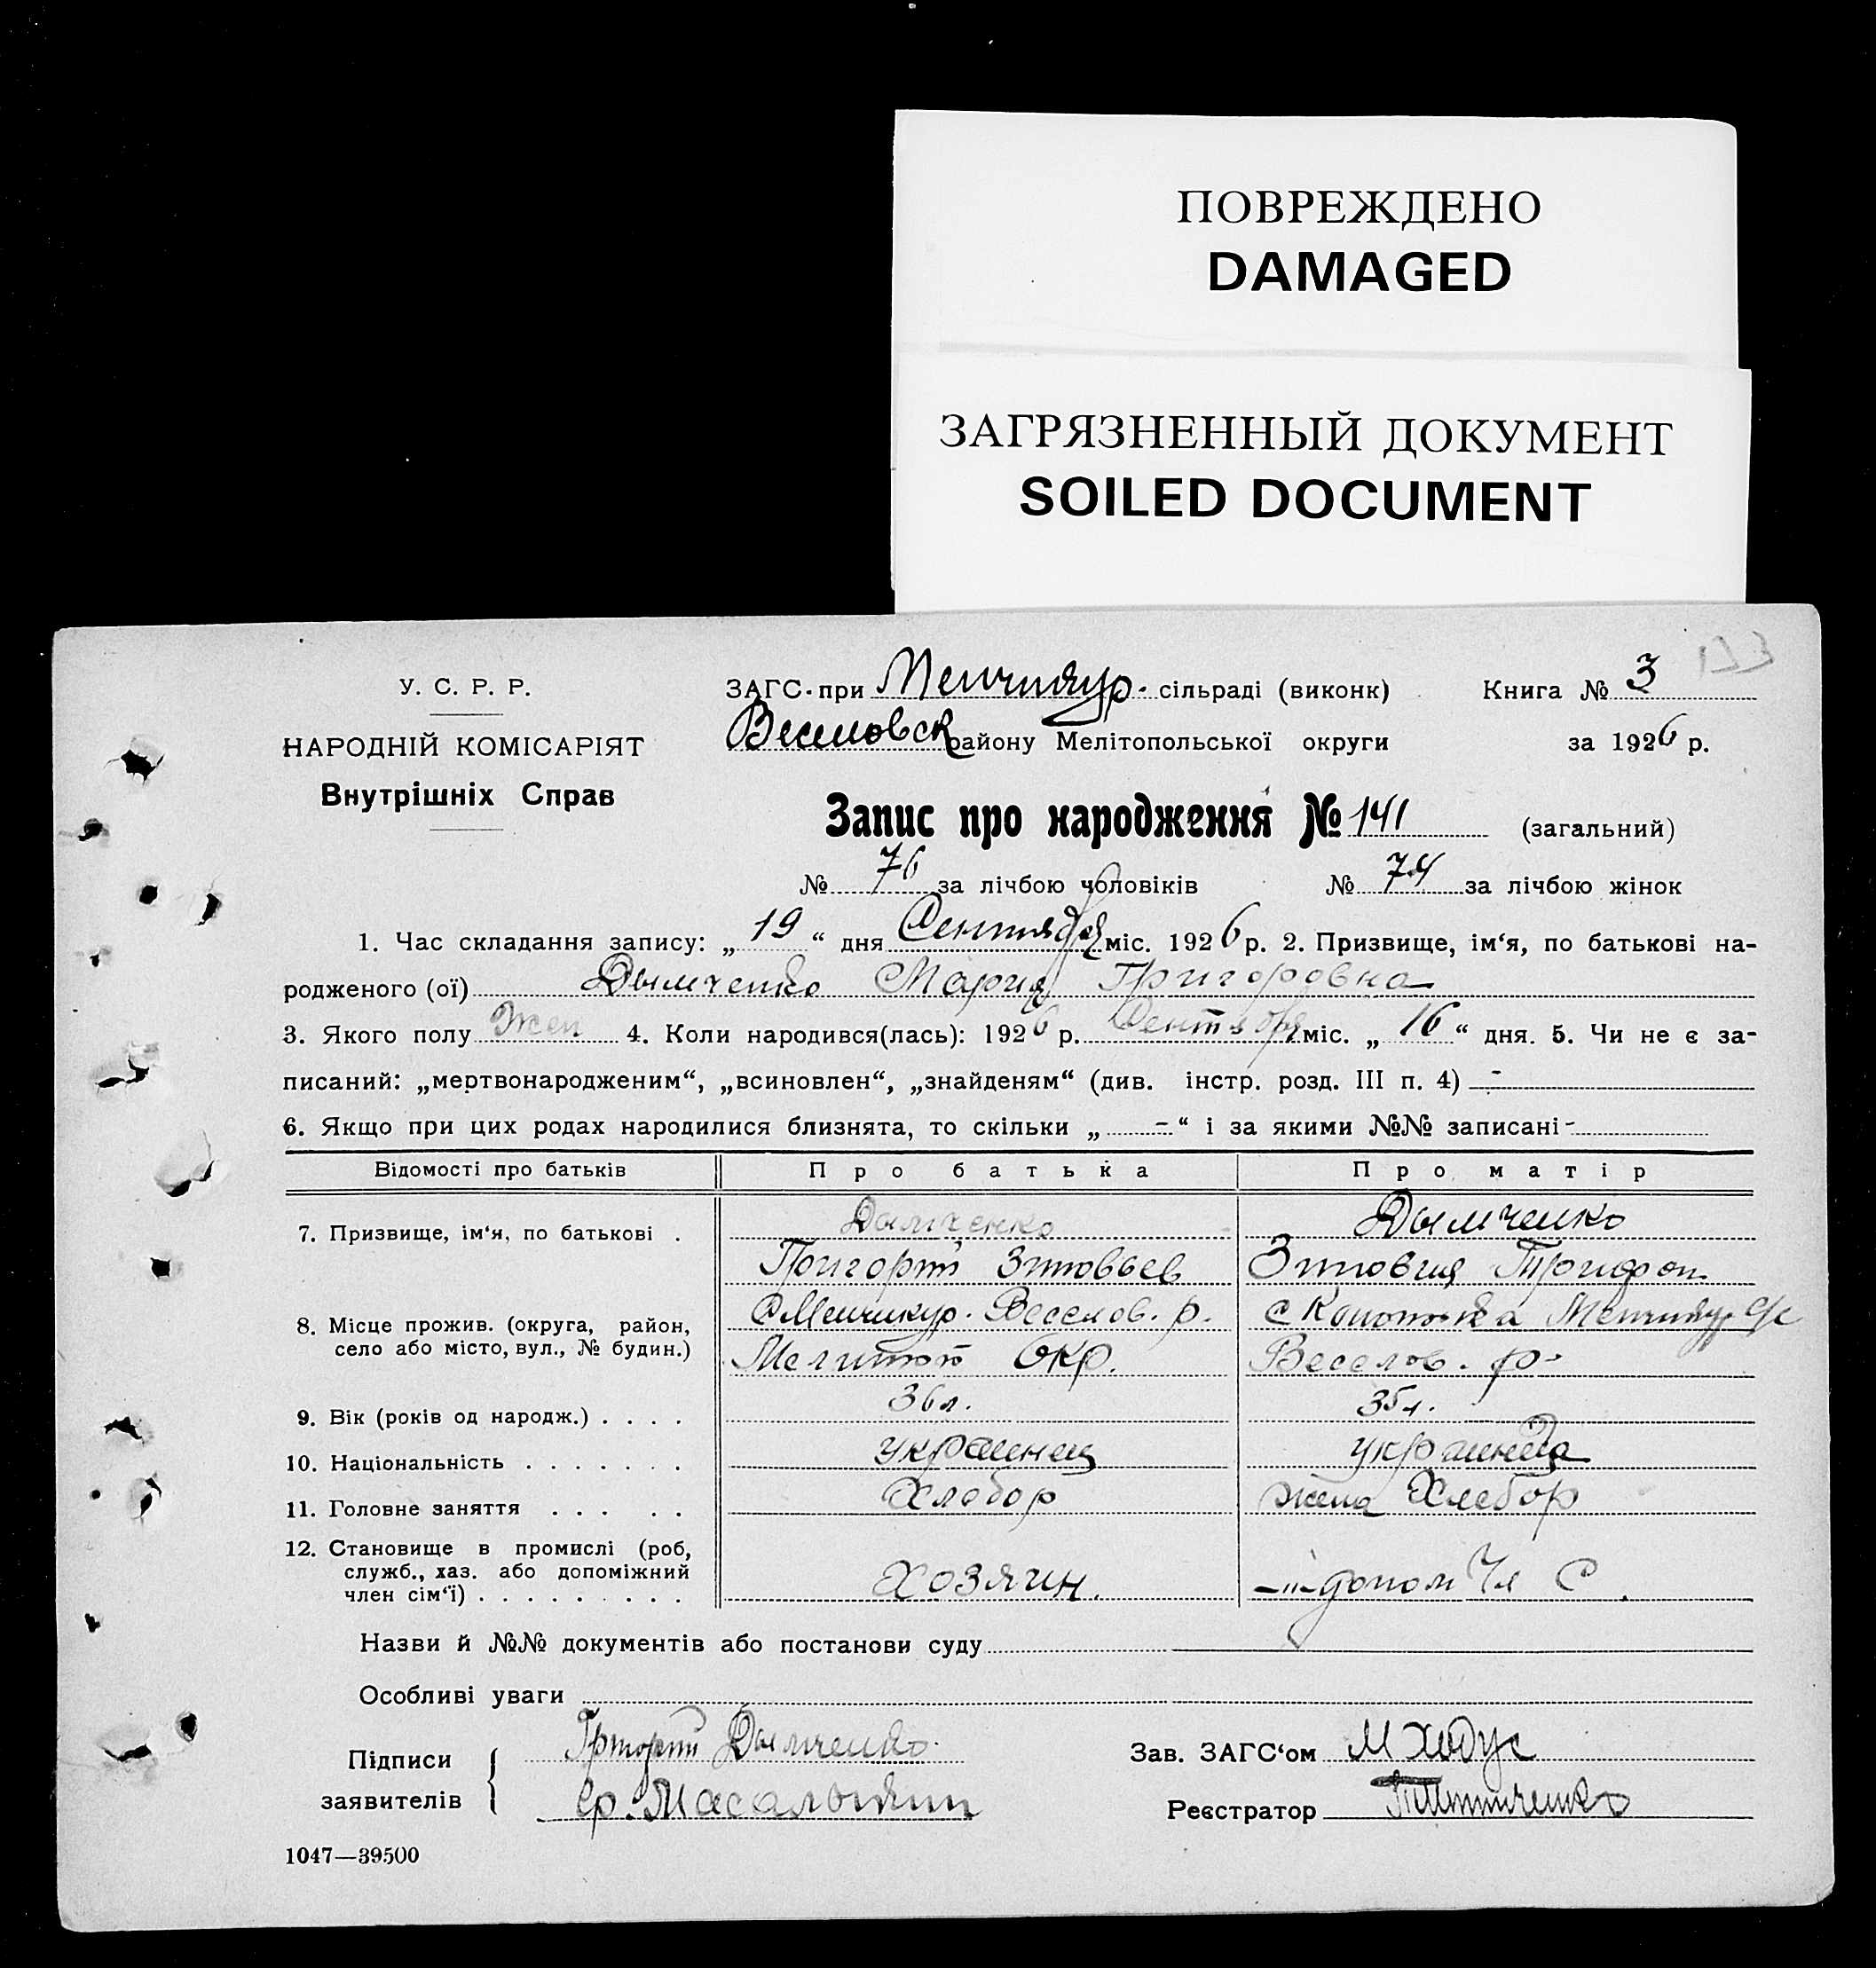 ПОВРЕЖДЕНО
DAMAGED
ЗАГРЯЗНЕННЫЙ ДОКУМЕНТ
SOILED DOCUMENT
У. С. Р. Р.
НАРОДНІЙ КОМІСАРІЯТ
Внутрішніх Справ
ЗАГС при Менчикур. сільраді (виконк) Книга № 3
Веселовск району Мелітопольської округи за 1926 р.
Запис про народження № 141 (загальний)
№ 76 за лічбою чоловіків № 74 за лічбою жінок
1. Час складання запису: „19“ дня Сентября міс. 1926 р. 2. Призвище, ім‘я, по батькові на-
родженого (ої) Дымченко Мария Григоровна
3. Якого полу Жен 4. Коли народився(лась): 1926 р. Сентября міс. „16“ дня. 5. Чи не є за-
писаний: „мертвонародженим“, „всиновлен“, „знайденям“ (див. інстр. розд. III п. 4) -
6. Якщо при цих родах народилися близнята, то скільки „-“ і за якими №№ записані -
Відомості про батьків Про батька Про матір
7. Призвище, ім‘я, по батькові . Дымченко Дымченко
Григорий Зиновьев Зиновия Трифон
8. Місце прожив. (округа, район, село або місто, вул., № будин.) С Менчикур. Веселов. р. с Менчикур с/с
Мелитоп Окр. Веселов. р-
9. Вік (років од народж.) . . . . 36 л. 35 л.
10. Національність . . . . . . . украинец украинка
11. Головне заняття . . . . . Хлебор жена Хлебор
12. Становище в промислі (роб, служб., хаз. або допоміжний член сім‘ї) . . . . . . . . . Хозяин. -"- допом Чл С.
Назви й №№ документів або постанови суду
Особливі уваги
Підписи заявителів { Григорий Дымченко Зав. ЗАГС‘ом М Ходус
Реєстратор
1047—39500